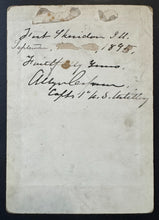 Fort Sheridan Ill.
September 189
Faithfully Yours,
Allyn Capron
Capt. 1st U.S. Artillery